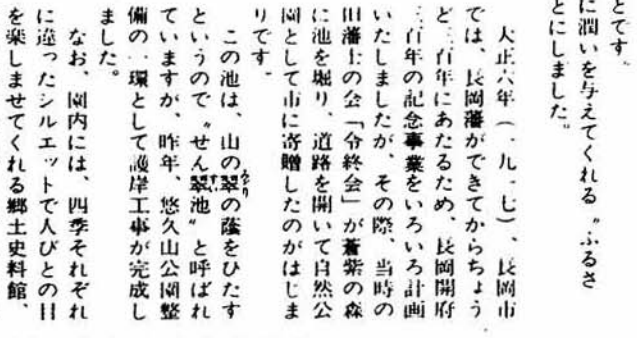 とです。
に潤いを与えてくれる〝ふるさ
とにしました。
大正六年(一九一七)、長岡市
では、長岡藩ができてからちょう
ど三百年にあたるため、長岡開府
三百年の記念事業をいろいろ計画
いたしましたが、その際、当時の
旧藩士の会「令終会」が蒼紫の森
に池を堀り、道路を開いて自然公
園として市に寄贈したのがはじま
りです。
この池は、山の翠の蔭をひたす
というので〝せん翠池〟と呼ばれ
ていますが、昨年、悠久山公園整
備の一環として護岸工事が完成し
ました。
なお、園内には、四季それぞれ
に違ったシルエットで人びとの目
を楽しませてくれる郷土史料館、